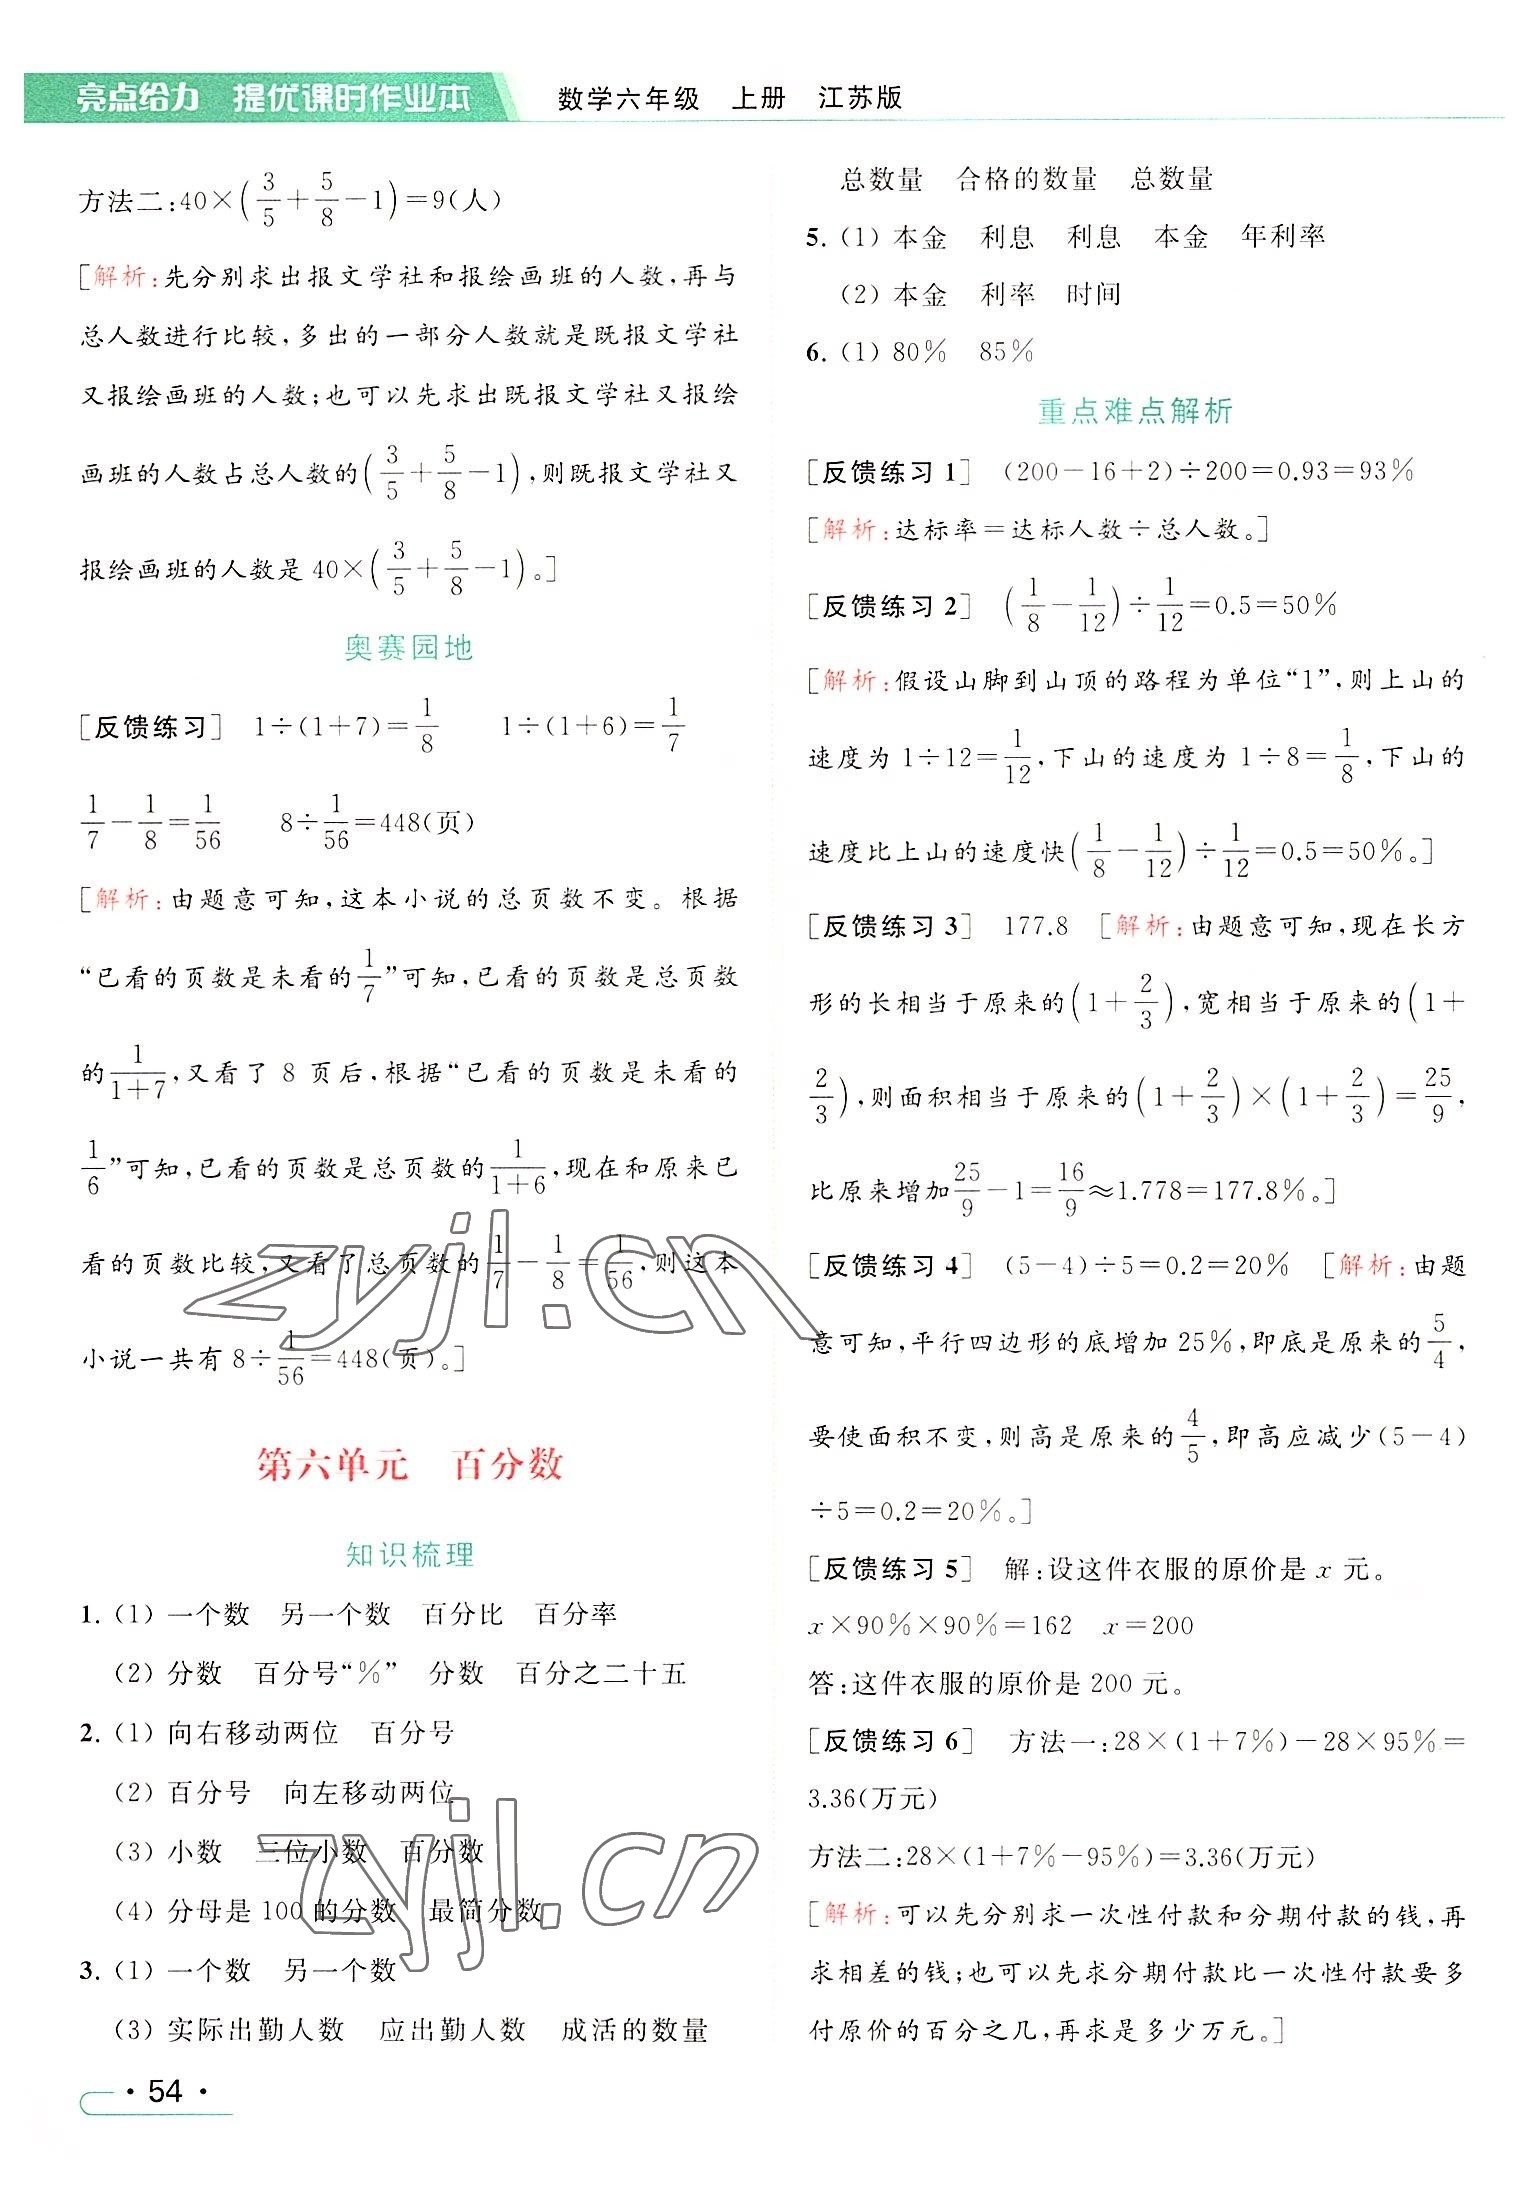 亮点给力 提优课时作业本 数学六年级 上册 江苏版
方法二:40×(3/5+5/8-1)=9(人)
[解析:先分别求出报文学社和报绘画班的人数,再与
总人数进行比较,多出的一部分人数就是既报文学社
又报绘画班的人数;也可以先求出既报文学社又报绘
画班的人数占总人数的(3/5+5/8-1),则既报文学社又
报绘画班的人数是 40×(3/5+5/8-1)。]
奥赛园地
[反馈练习] 1÷(1+7)=1/8 1÷(1+6)=1/7
1/7-1/8=1/56 8÷1/56=448(页)
[解析:由题意可知,这本小说的总页数不变。根据
“已看的页数是未看的1/7”可知,已看的页数是总页数
的1/(1+7),又看了 8 页后,根据“已看的页数是未看的
1/6”可知,已看的页数是总页数的1/(1+6),现在和原来已
看的页数比较,又看了总页数的1/7-1/8=1/56,则这本
小说一共有 8÷1/56=448(页)。]
第六单元 百分数
知识梳理
1. (1) 一个数 另一个数 百分比 百分率
(2) 分数 百分号“%” 分数 百分之二十五
2. (1) 向右移动两位 百分号
(2) 百分号 向左移动两位
(3) 小数 三位小数 百分数
(4) 分母是 100 的分数 最简分数
3. (1) 一个数 另一个数
(3) 实际出勤人数 应出勤人数 成活的数量
总数量 合格的数量 总数量
5. (1) 本金 利息 利息 本金 年利率
(2) 本金 利率 时间
6. (1) 80% 85%
重点难点解析
[反馈练习 1] (200-16+2)÷200=0.93=93%
[解析:达标率=达标人数÷总人数。]
[反馈练习 2] (1/8-1/12)÷1/12=0.5=50%
[解析:假设山脚到山顶的路程为单位“1”,则上山的
速度为 1÷12=1/12,下山的速度为 1÷8=1/8,下山的
速度比上山的速度快(1/8-1/12)÷1/12=0.5=50%。]
[反馈练习 3] 177.8 [解析:由题意可知,现在长方
形的长相当于原来的(1+2/3),宽相当于原来的(1+
2/3),则面积相当于原来的(1+2/3)×(1+2/3)=25/9,
比原来增加25/9-1=16/9≈1.778=177.8%。]
[反馈练习 4] (5-4)÷5=0.2=20% [解析:由题
意可知,平行四边形的底增加 25%,即底是原来的5/4,
要使面积不变,则高是原来的4/5,即高应减少(5-4)
÷5=0.2=20%。]
[反馈练习 5] 解:设这件衣服的原价是 x 元。
x×90%×90%=162 x=200
答:这件衣服的原价是 200 元。
[反馈练习 6] 方法一:28×(1+7%)-28×95%=
3.36(万元)
方法二:28×(1+7%-95%)=3.36(万元)
[解析:可以先分别求一次性付款和分期付款的钱,再
求相差的钱;也可以先求分期付款比一次性付款要多
付原价的百分之几,再求是多少万元。]
zyjl.cn
zyjl.cn
·54·